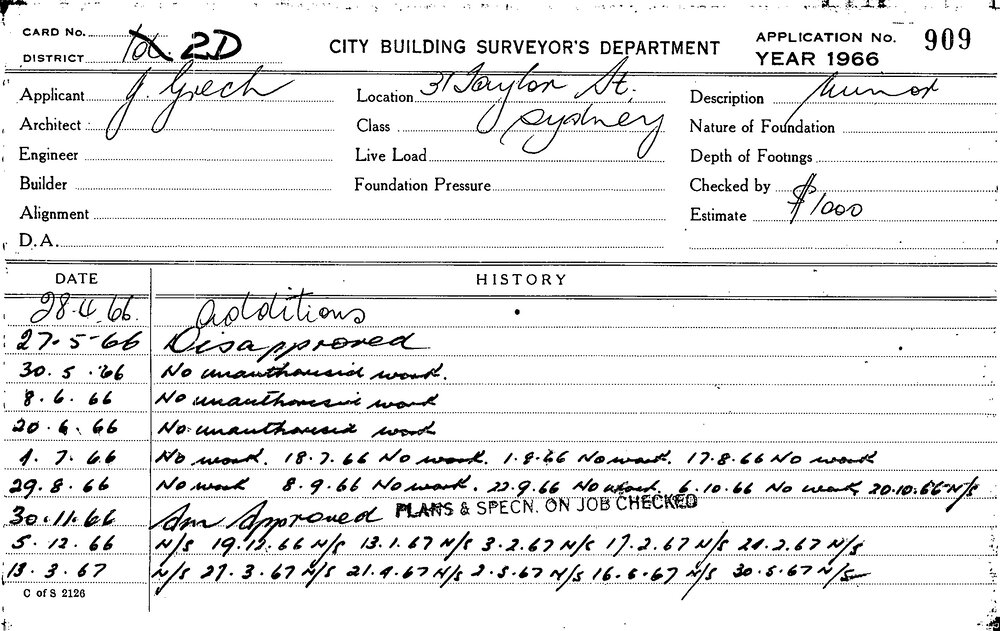 CARD No.
DISTRICT 2D
CITY BUILDING SURVEYOR'S DEPARTMENT
APPLICATION No. 909
YEAR 1966
Applicant J. Grech
Location 31 Taylor St.
Description Minor
Architect
Class Sydney
Nature of Foundation
Engineer
Live Load
Depth of Footings
Builder
Foundation Pressure
Checked by
Alignment
Estimate $1000
D.A.
DATE HISTORY
28.4.66. Additions
27.5-66 Disapproved
30.5.66 No unauthorised work.
8.6.66 No unauthorised work
20.6.66 No unauthorised work
4.7.66 No work. 18.7.66 No work. 1.8.66 No work. 17.8.66 No work
29.8.66 No work 8.9.66 No work. 22.9.66 No work. 6.10.66 No work, 20.10.66 N/S
30.11.66 Am Approved PLANS & SPECN. ON JOB CHECKED
5.12.66 N/S 19.12.66 N/S 13.1.67 N/S 3.2.67 N/S 17.2.67 N/S 24.2.67 N/S
13.3.67 N/S 27.3.67 N/S 21.4.67 N/S 2.5.67 N/S 16.5.67 N/S 30.5.67 N/S
C of S 2126